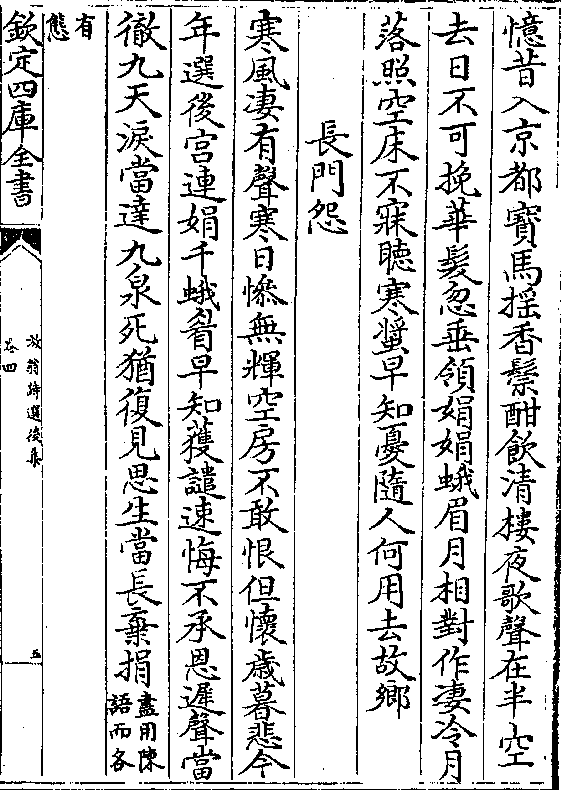 憶昔入京都寳馬揺香鬃酣飲清樓夜歌聲在半空
去日不可挽華髮忽垂領娟娟蛾眉月相對作凄冷月
落照空床不寐聽寒螿早知憂隨人何用去故鄉
長門怨
寒風凄有聲寒日慘無輝空房不敢恨但懷歳暮悲今
年選後宫連娟千蛾眉早知獲譴速悔不承恩遲聲當
徹九天淚當達九泉死猶復見思生當長棄捐盡用陳
語而各
有
態
欽定四庫全書
放翁詩選後集
卷四
五